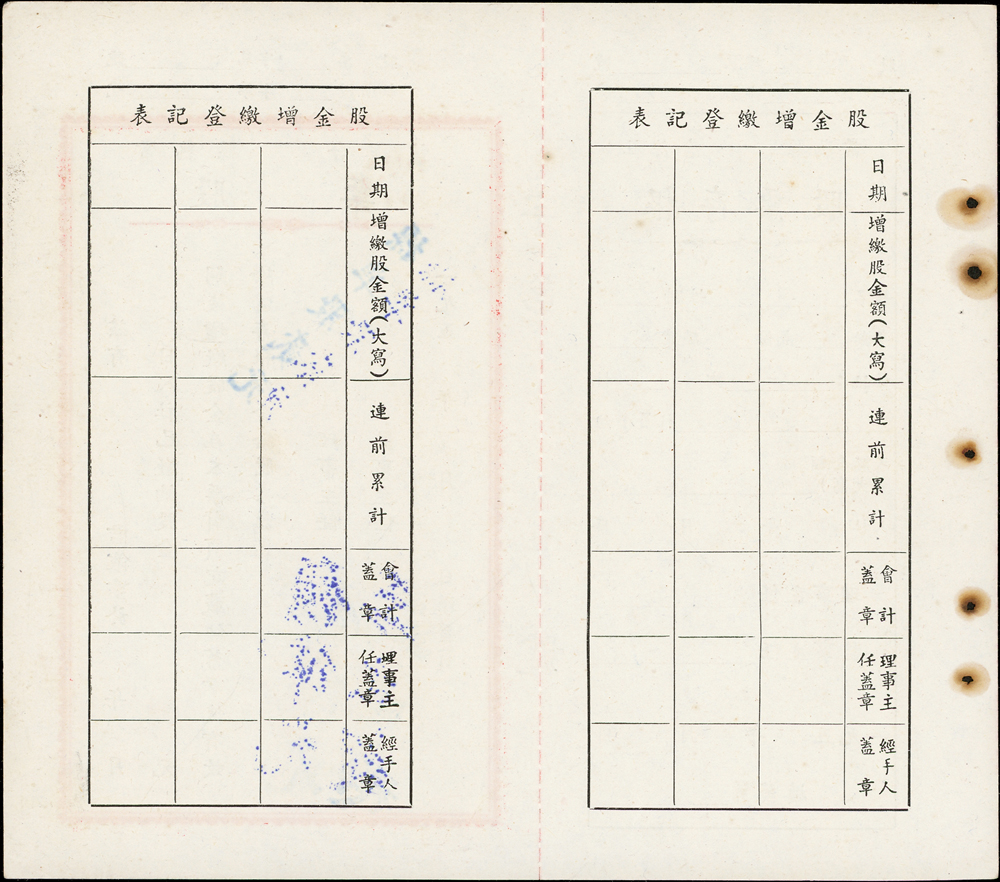 股金增繳登記表
日期
增繳股金額(大寫)
連前累計
會計
蓋章
理事主
任蓋章
經手人
蓋章
股金增繳登記表
日期
增繳股金額(大寫)
連前累計
會計
蓋章
理事主
任蓋章
經手人
蓋章